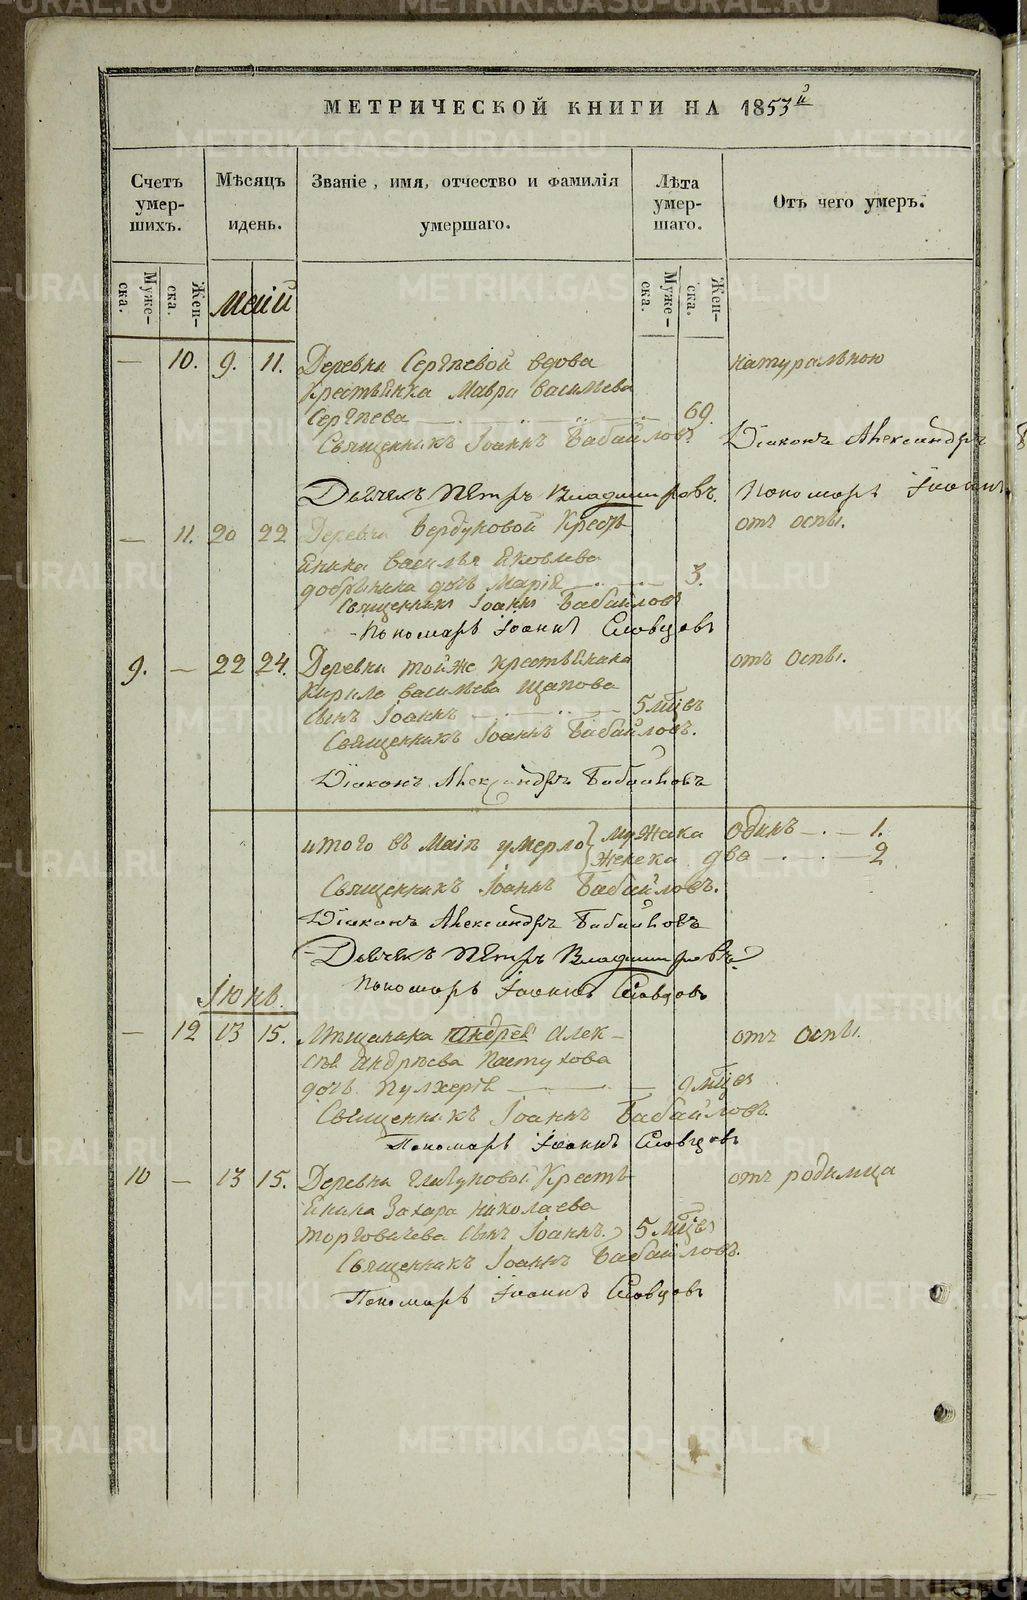 МЕТРИЧЕСКОЙ КНИГИ НА 1853й
Счетъ умер- шихъ.
Мѣсяцъ идень.
Званіе, имя, отчество и фамилія умершаго.
Лѣта умер- шаго.
Отъ чего умеръ.
Муже- ска. Жен- ска. Маій Муже- ска. Жен- ска.
— 10. 9. 11. Деревни Сергѣевой вдова натуральною
крестьянка Мавра Васильева
Сергѣева 69.
Священникъ Іоаннъ Бабайловъ Діаконъ Александръ
Дьячекъ Петръ Владимировъ. Пономарь Іоаннъ
— 11. 20 22 Деревни Бердуковой Кресть отъ оспы.
янина Василья Яковлева
добрынина дочь Марія 3.
Священникъ Іоаннъ Бабайловъ
Пономарь Іоаннъ Словцовъ
9. — 22 24. Деревни тойже крестьянина отъ оспы.
Кирила Васильева Щапова
сынъ Іоаннъ 5 мцѣв
Священникъ Іоаннъ Бабайловъ.
Діаконъ Александръ Бабайловъ
итого въ Маіѣ умерло мужска одинъ — 1.
женска два — 2
Священникъ Іоаннъ Бабайловъ.
Діаконъ Александръ Бабайловъ
Дьячекъ Петръ Владимировъ
Пономарь Іоаннъ Словцовъ
Іюнь.
— 12 13 15. Мѣщанина Андрея Алек- отъ оспы.
сѣя Андрѣева Пастухова
дочь Пулхерія 9 мцѣв
Священникъ Іоаннъ Бабайловъ
Пономарь Іоаннъ Словцовъ
10 — 13 15. Деревни Глядуновой Кресть отъ родимца
янина Захара Николаева
торговичева сынъ Іоаннъ 5 мцѣв
Священникъ Іоаннъ Бабайловъ.
Пономарь Іоаннъ Словцовъ
METRIKI.GASO-URAL.RU